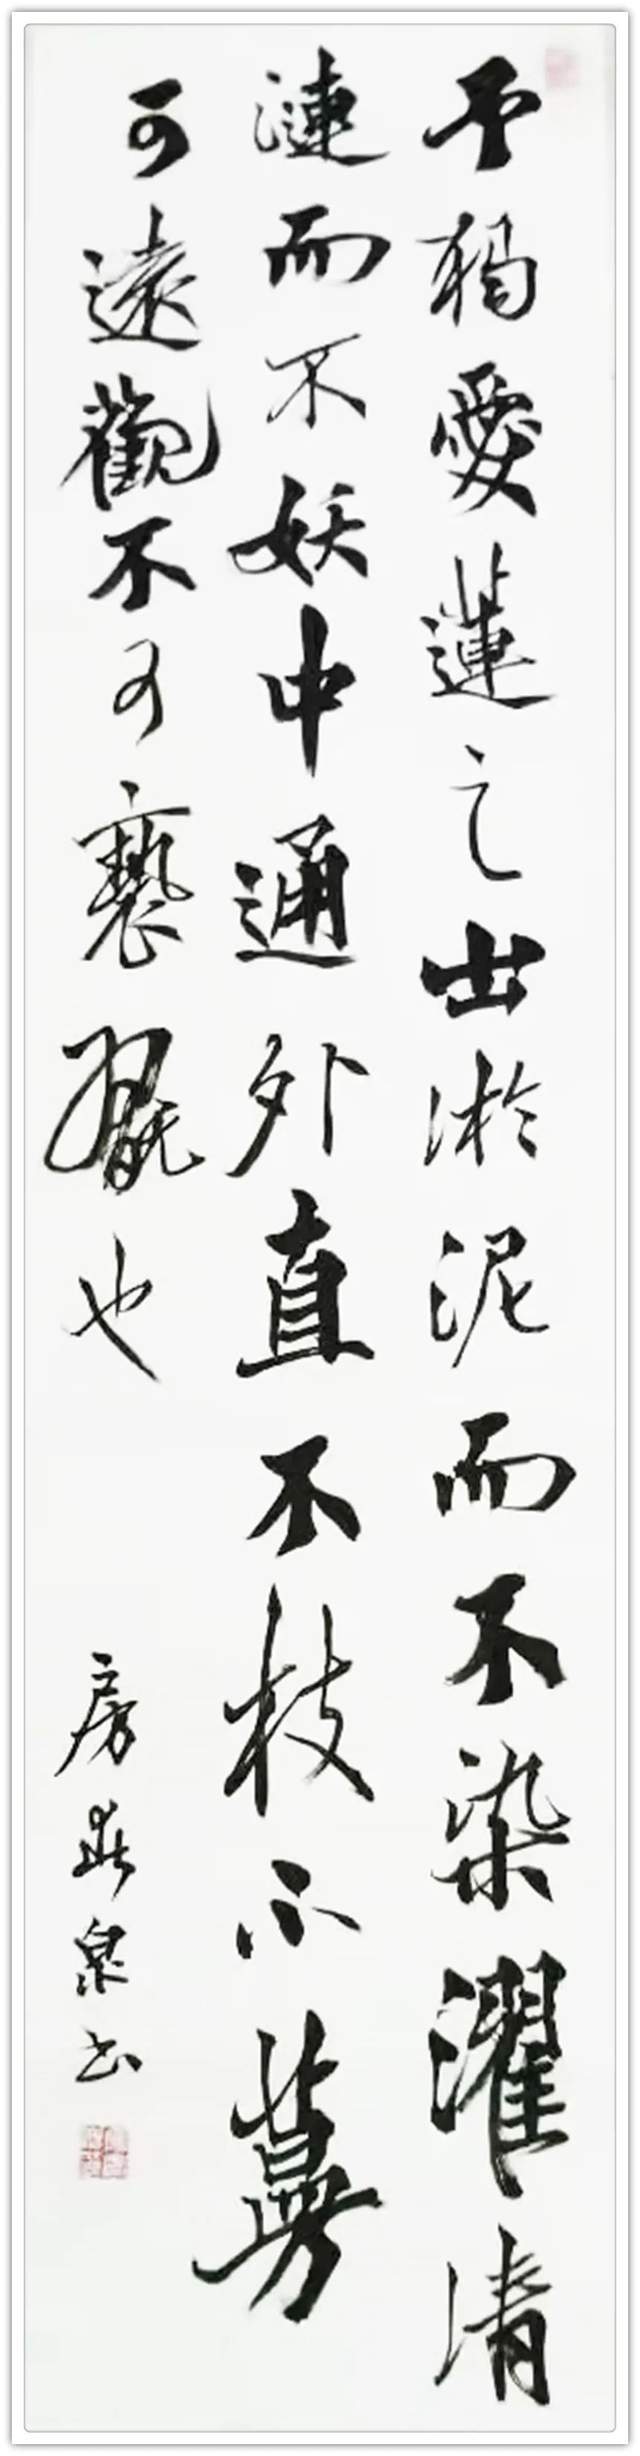 予獨愛蓮之出淤泥而不染濯清
漣而不妖中通外直不枝不蔓
可遠觀不可褻翫也
房泉书